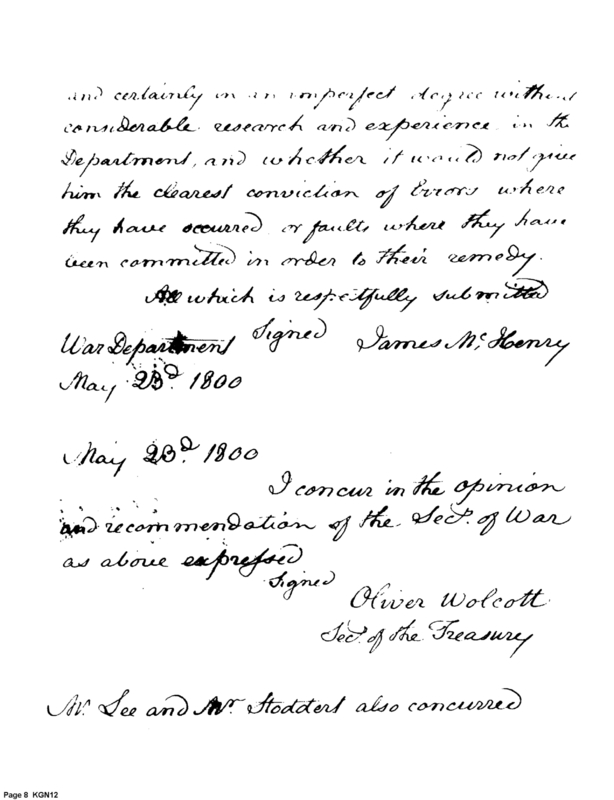 and certainly in an imperfect degree without
considerable research and experience in the
Department, and whether it would not give
him the clearest conviction of Errors where
they have occurred or faults where they have
been committed in order to their remedy.
All which is respectfully submitted
Signed
War Department James Mc. Henry
May 23d. 1800
May 23d. 1800
I concur in the opinion
and recommendation of the Secy. of War
as above expressed
Signed
Oliver Wolcott
Secy. of the Treasury
Mr. Lee and Mr. Stoddert also concurred
Page 8 KGN12